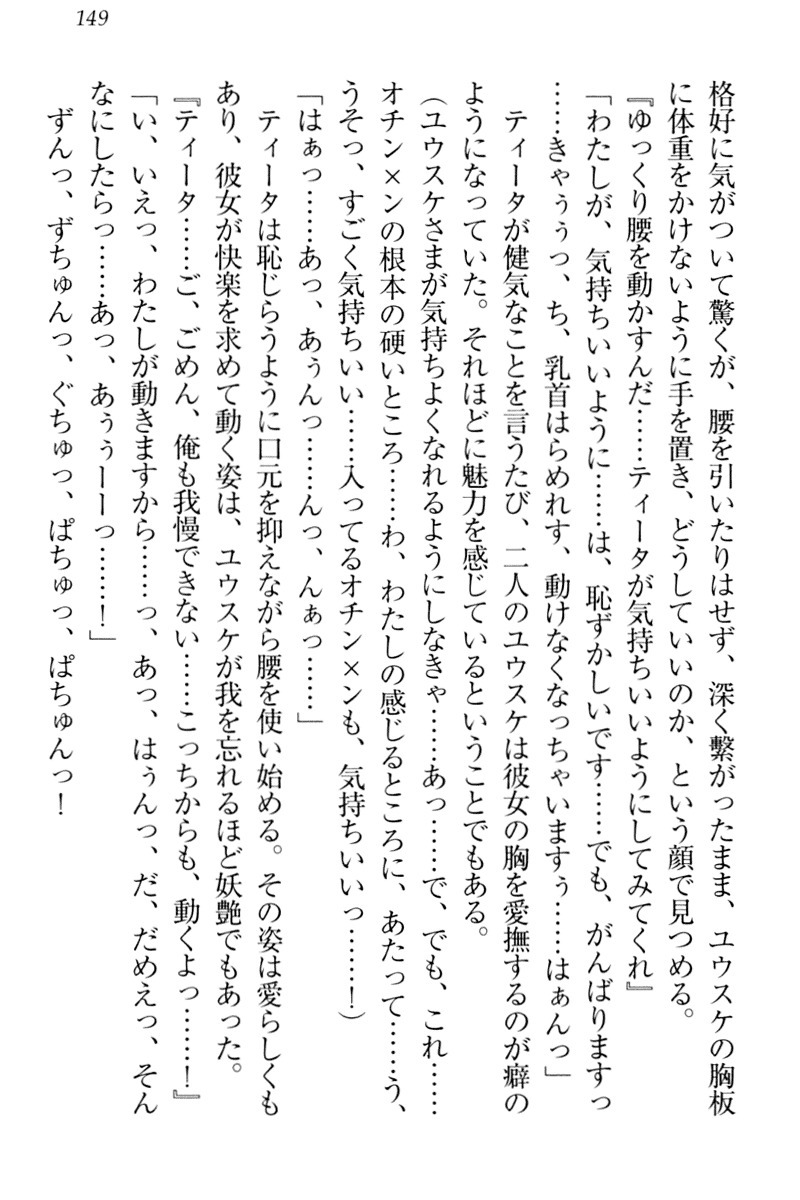 149
格好に気がついて驚くが、腰を引いたりはせず、深く繋がったまま、ユウスケの胸板
に体重をかけないように手を置き、どうしていいのか、という顔で見つめる。
『ゆっくり腰を動かすんだ……ティータが気持ちいいようにしてみてくれ』
「わたしが、気持ちいいように……は、恥ずかしいです……でも、がんばりますっ
……きゃぅぅっ、ち、乳首はらめれす、動けなくなっちゃいますぅ……はぁんっ」
ティータが健気なことを言うたび、二人のユウスケは彼女の胸を愛撫するのが癖の
ようになっていた。それほどに魅力を感じているということでもある。
(ユウスケさまが気持ちよくなれるようにしなきゃ……あっ……で、でも、これ……
オチン×ンの根本の硬いところ……わ、わたしの感じるところに、あたって……う、
うそっ、すごく気持ちいい……入ってるオチン×ンも、気持ちいいっ……！)
「はぁっ……あっ、あぅんっ……んっ、んぁっ……」
ティータは恥じらうように口元を抑えながら腰を使い始める。その姿は愛らしくも
あり、彼女が快楽を求めて動く姿は、ユウスケが我を忘れるほど妖艶でもあった。
『ティータ……ご、ごめん、俺も我慢できない……こっちからも、動くよっ……！』
「い、いえっ、わたしが動きますから……っ、あっ、はぅんっ、だ、だめえっ、そん
なにしたらっ……あっ、あぅぅーーっ……！」
ずんっ、ずちゅんっ、ぐちゅっ、ぱちゅっ、ぱちゅんっ！